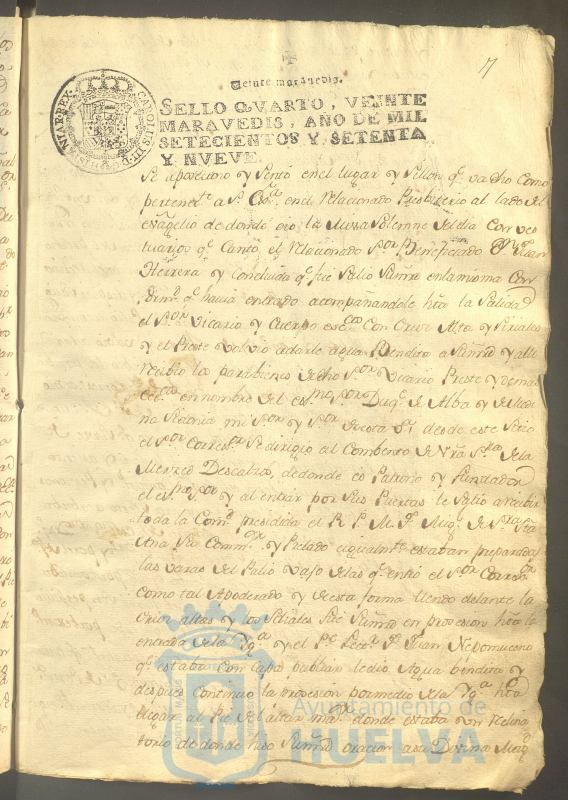 7
Veinte maravedis.
SELLO QVARTO, VEINTE
MARAVEDIS, AÑO DE MIL
SETECIENTOS Y SETENTA
Y NVEVE.
CAROLUS III
Se aposiciono y Sento en el lugar y Sillon q.e va dho como
pertenec.te a S. en el Relacionado Presbiterio al lado del
evangelio de donde oio la Missa Solemne del dia con ves
tuarios q.e Canto el Relacionado S.or Beneficiado D.n Juan
Herrera y Concluida q.e fue Salio Su md en la misma con
dim.to q.e havia entrado acompañandole hta la Salida
el S.or Vicario y Cuerpo ecc.co Con Cruz Alta y Ziriales
y el Preste volvio a darle agua Bendita a Su md y alli
recibio los parabienes de dho S.or Vicario Preste y demas
en nombre del ex.mo S.or Duq.e de Alba y de Medi
na Sidonia mi S.or y S.or de esta desde este Sitio
el S.or Corre.or Se dirigio al Combento de Nra S.ra de la
Merzed Descalza, de donde es Patrono y Fundador
el ex.mo S.or y al entrar por Sus Puertas le Salio a recibir
toda la Com.d presidida el R. P. M. F. Mig.l de S.ra Sta
Ana Su Comm.or y Prelado e igualm.te estaban preparadas
las varas del Palio vajo de las q.e entro el S.or Corre.or
Como tal Apoderado y de esta forma llendo delante la
Cruz alta y los Ziriales fue Su md en procesion hta la
entrada de la Ygl.a y el P.e F. Juan Nepomuceno
q.e estaba Con Capa pubial le dio Agua bendita y
despues Continuo la procesion por medio de la Yg.a hta
llegar al Pie del altar ma.or donde estaba un Reclina
torio de donde hizo Su md oracion a su Divina Mag.d
Ayuntamiento de
HUELVA